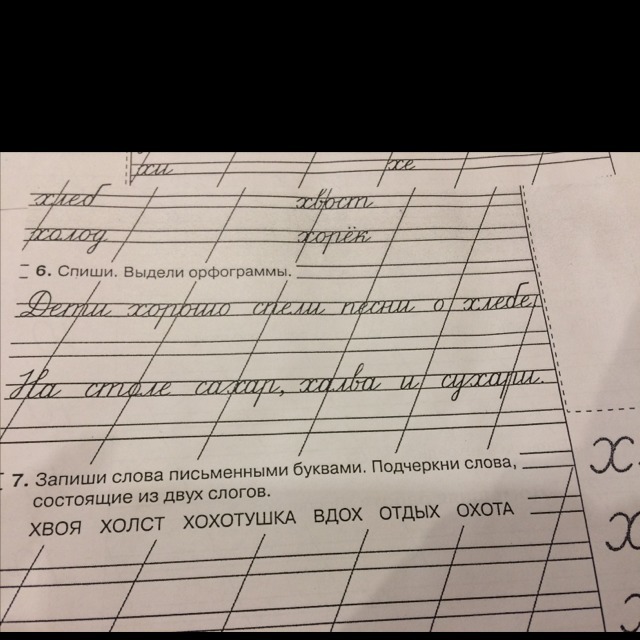 хи хе
хлеб хвост
холод хорёк
6. Спиши. Выдели орфограммы.
Дети хорошо спели песни о хлебе,
На столе сахар, халва и сухари.
7. Запиши слова письменными буквами. Подчеркни слова,
состоящие из двух слогов.
ХВОЯ ХОЛСТ ХОХОТУШКА ВДОХ ОТДЫХ ОХОТА
х
х